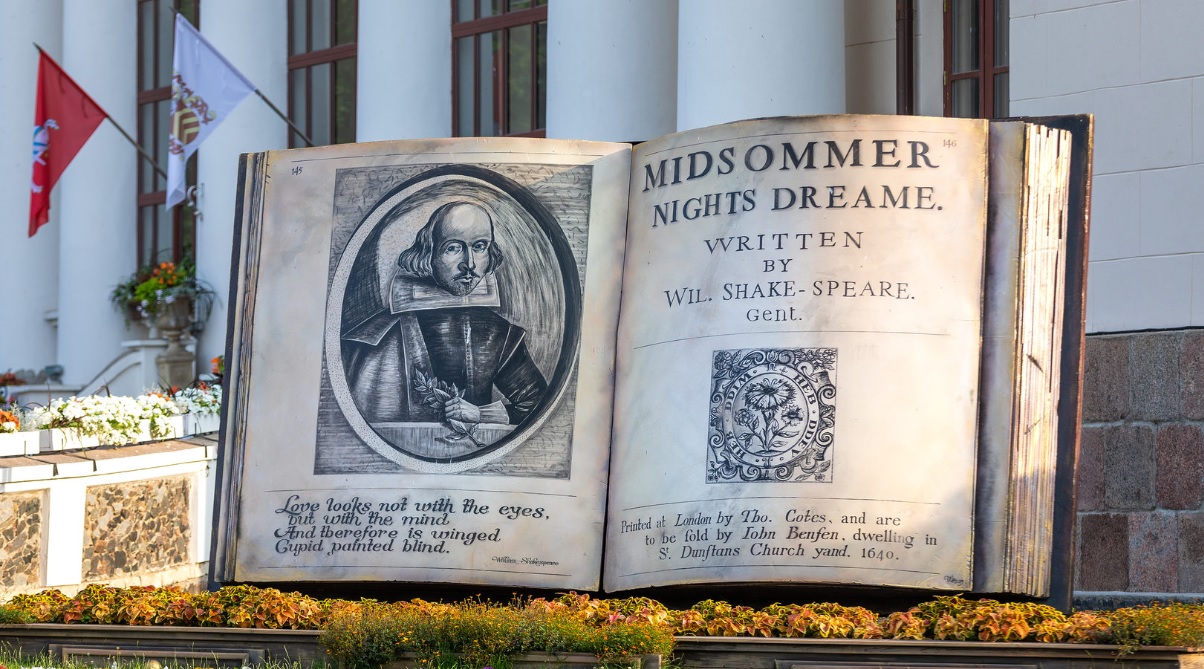 145
Love looks not with the eyes,
but with the mind
And therefore is winged
Cupid painted blind.
William Shakespeare
146
MIDSOMMER
NIGHTS DREAME.
WRITTEN
BY
WIL. SHAKE-SPEARE.
Gent.
Printed at London by Tho. Cotes, and are
to be sold by Iohn Benson, dwelling in
St. Dunstans Church yard. 1640.